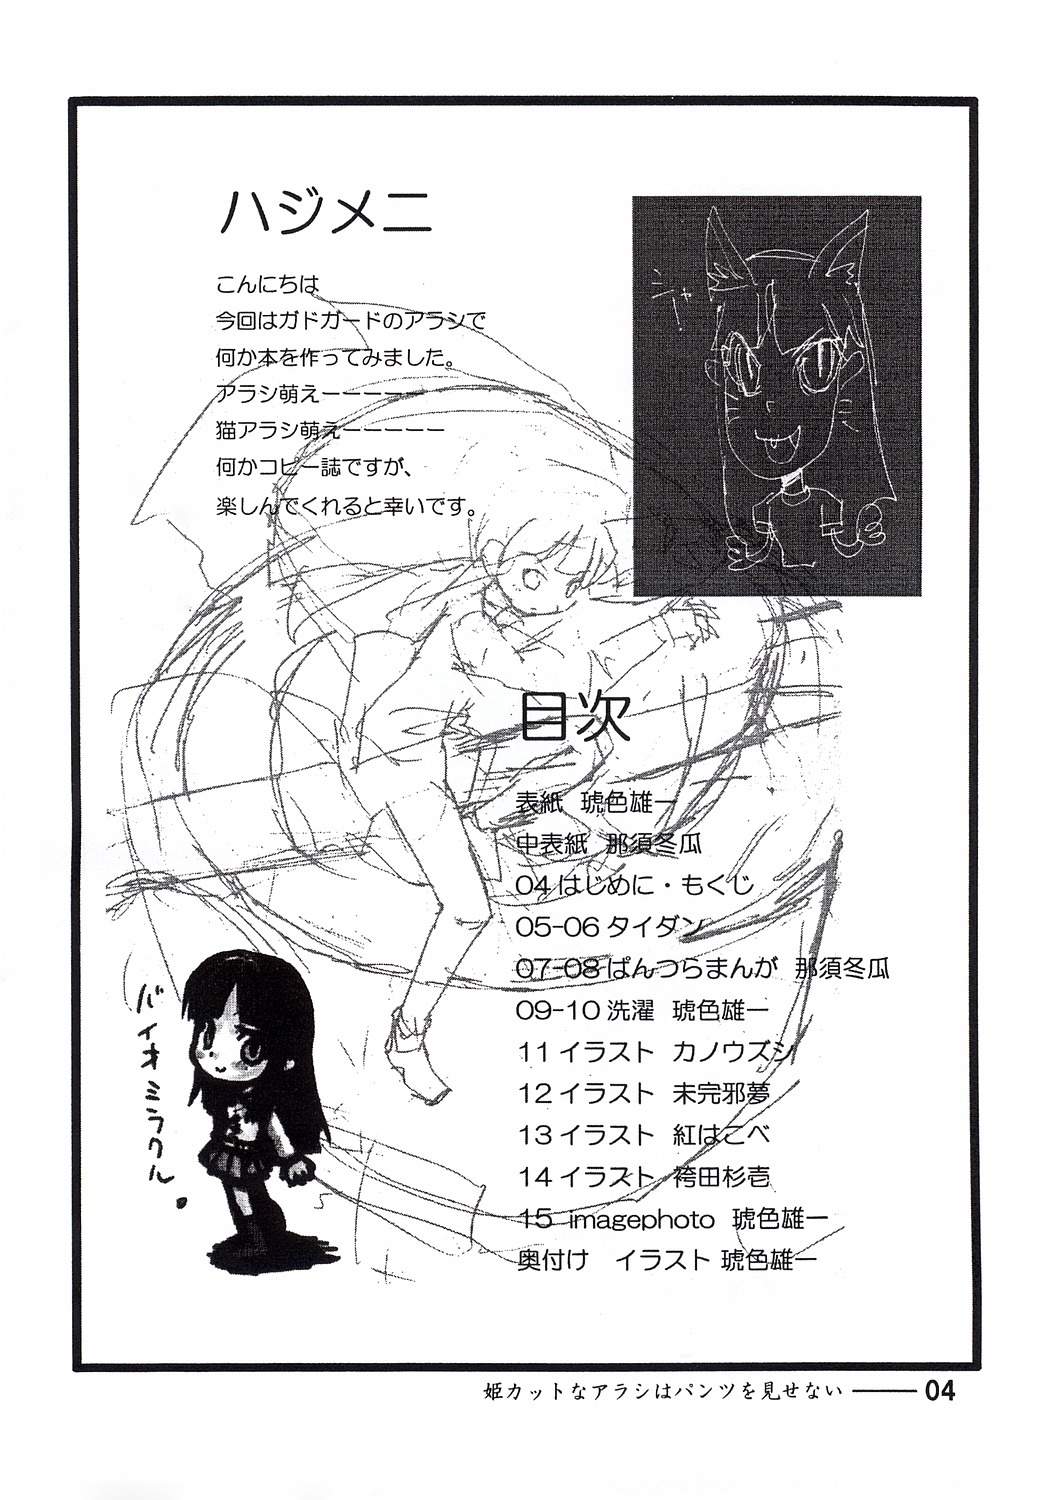 ハジメニ
こんにちは
今回はガドガードのアラシで
何か本を作ってみました。
アラシ萌えーーーーー
猫アラシ萌えーーーーー
何かコピー誌ですが、
楽しんでくれると幸いです。
シャー
目次
表紙 琥色雄一
中表紙 那須冬瓜
04 はじめに・もくじ
05-06 タイダン
07-08 ぱんつらまんが 那須冬瓜
09-10 洗濯 琥色雄一
11 イラスト カノウズシ
12 イラスト 未完邪夢
13 イラスト 紅はこべ
14 イラスト 袴田杉壱
15 imagephoto 琥色雄一
奥付け イラスト 琥色雄一
バイオミラクル
姫カットなアラシはパンツを見せない ―― 04